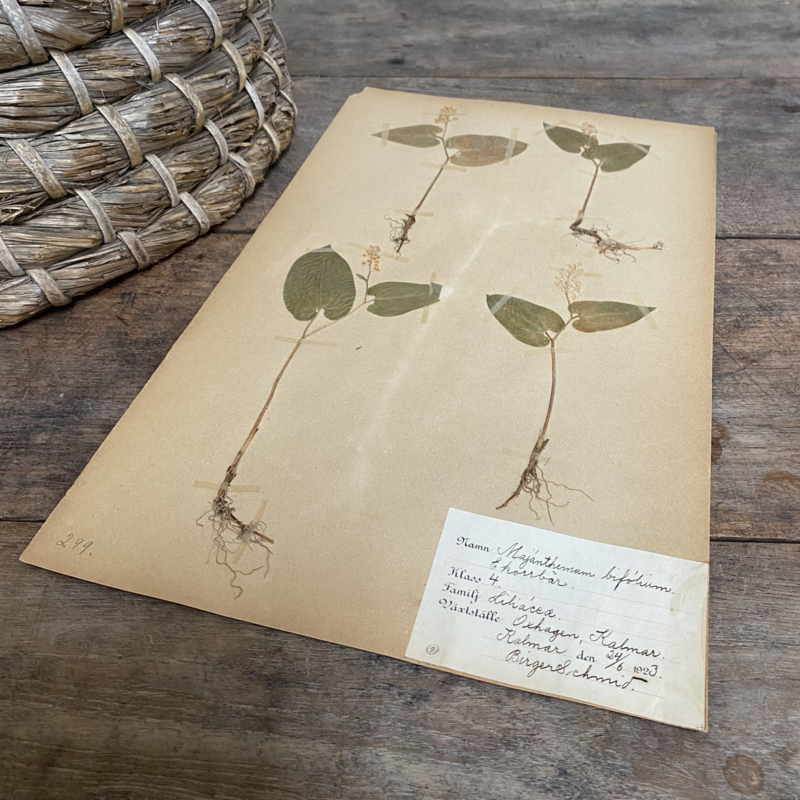 299.
Namn Majánthemum bifólium.
Ekorrbär.
Klass 4.
Familj Liliácea.
Växtställe Oxhagen, Kalmar.
Kalmar den 24/6 1923.
Birger Schmid.